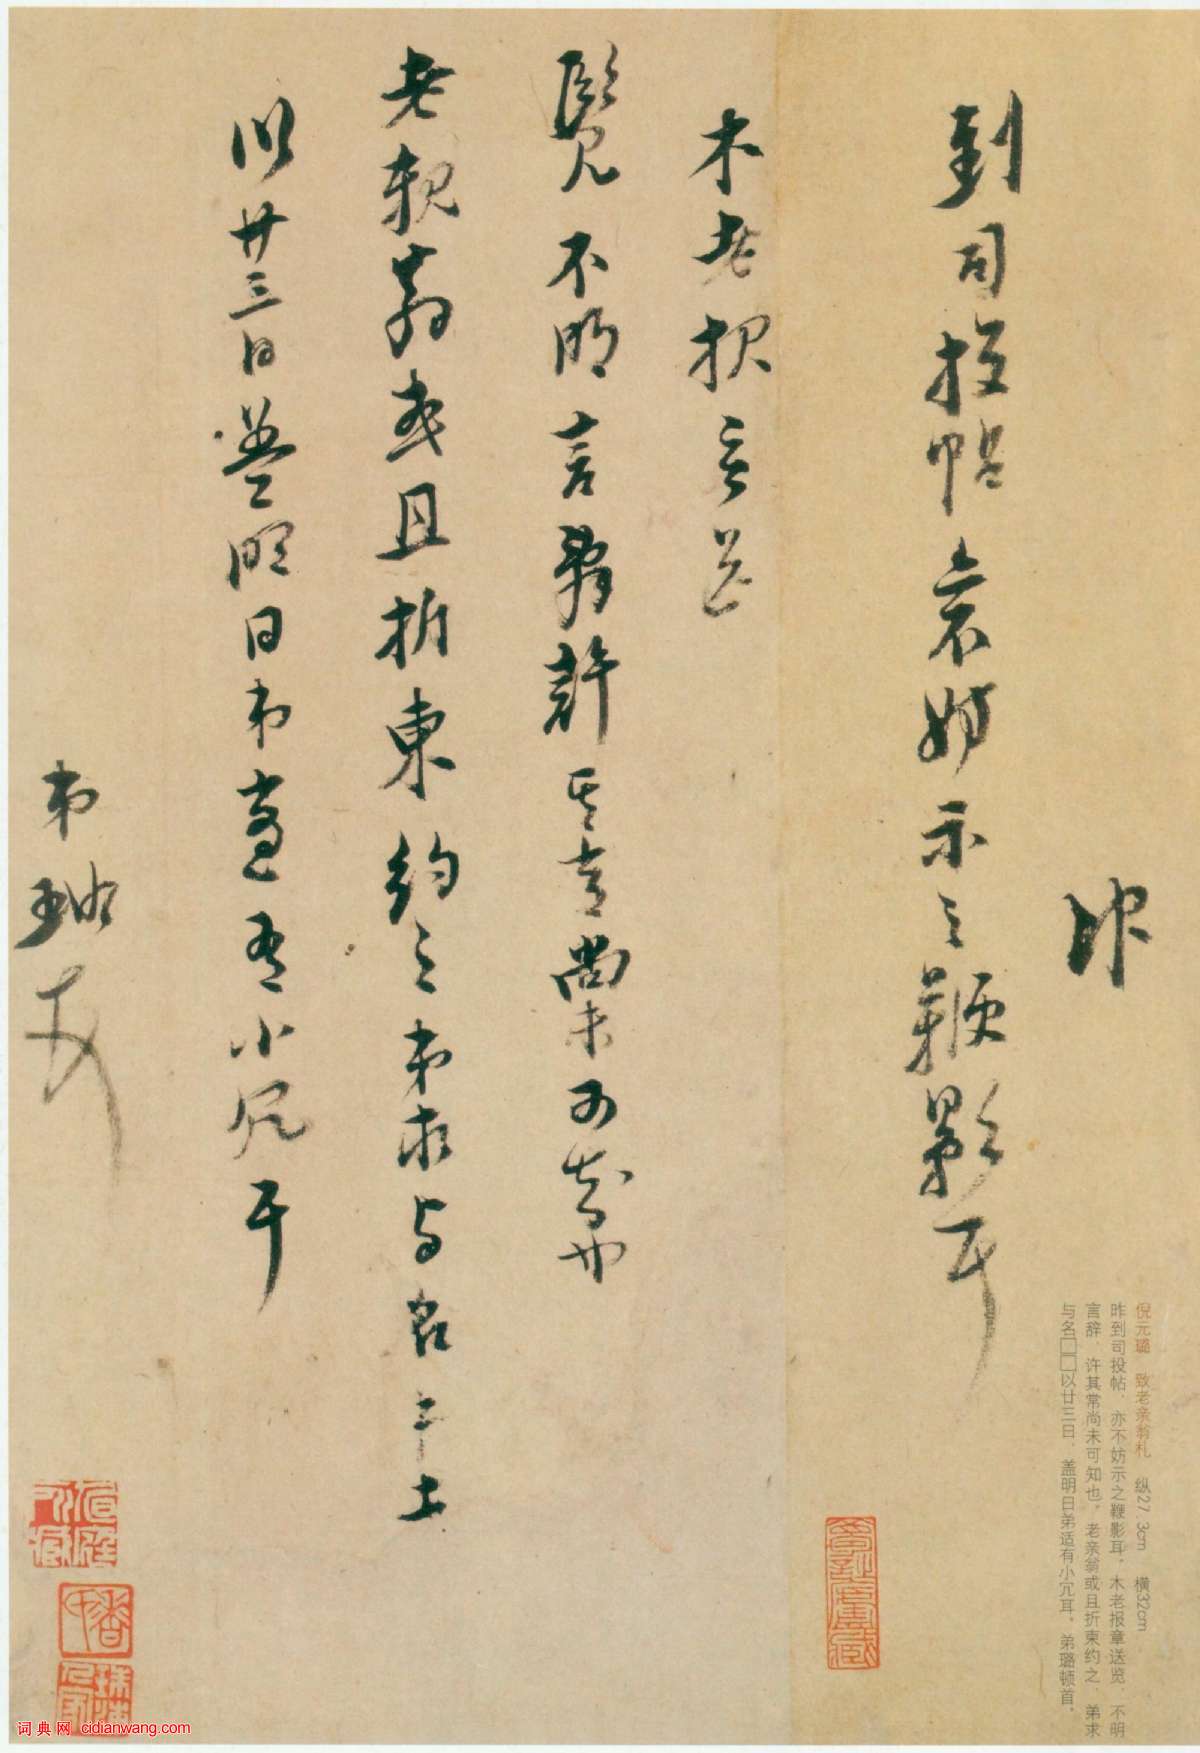 昨
到司投帖亦不妨示之鞭影耳
木老报章送
覽不明言辭許其尚未可知也
老親翁或且折柬約之弟求与名
以廿三日蓋明日弟適有小冗耳
弟璐頓首
倪元璐 致老亲翁札 纵27.3cm 横32cm
昨到司投帖，亦不妨示之鞭影耳，木老报章送览，不明
言辞，许其常尚未可知也，老亲翁或且折柬约之，弟求
与名□□以廿三日，盖明日弟适有小冗耳，弟璐顿首。
词典网 cidianwang.com